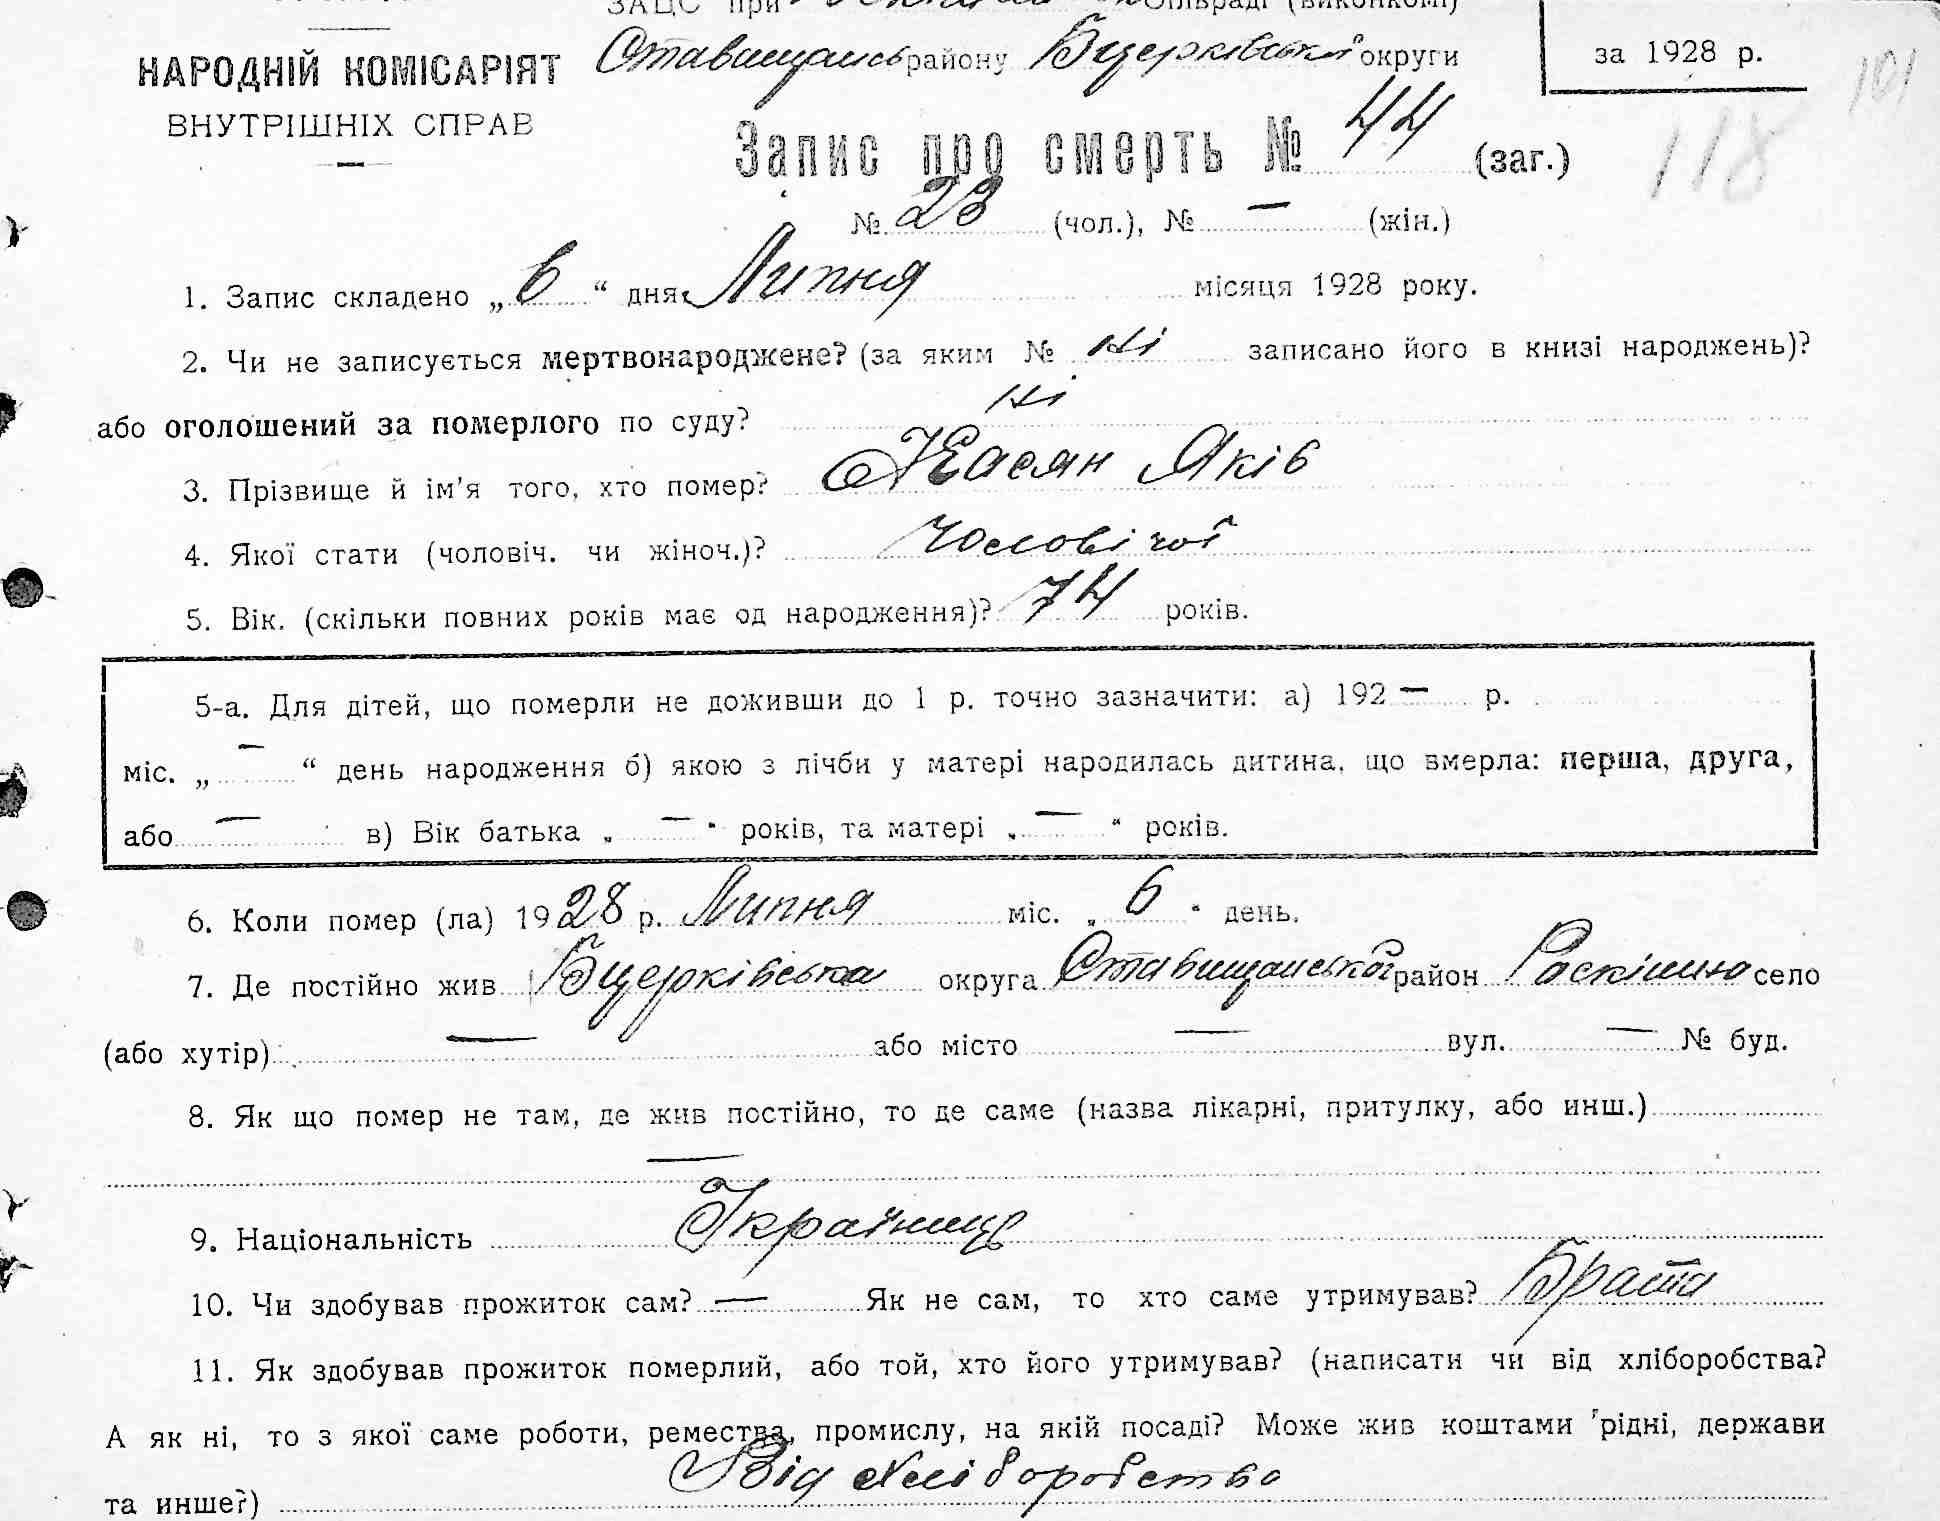 ЗАЦС при сільраді (виконкомі)
НАРОДНІЙ КОМІСАРІЯТ
ВНУТРІШНІХ СПРАВ
Ставищанськ району Бцерківської округи
за 1928 р.
101
118
Запис про смерть № 44 (заг.)
№ 23 (чол.), № — (жін.)
1. Запис складено „ 6 “ дня Липня місяця 1928 року.
2. Чи не записується мертвонароджене? (за яким № ні записано його в книзі народжень)?
або оголошений за померлого по суду? ні
3. Прізвище й ім'я того, хто помер? Касян Яків
4. Якої стати (чоловіч. чи жіноч.)? Чоловічої
5. Вік. (скільки повних років має од народження)? 74 років.
5-а. Для дітей, що померли не доживши до 1 р. точно зазначити: а) 192 — р.
міс. „ — “ день народження б) якою з лічби у матері народилась дитина, що вмерла: перша, друга,
або — в) Вік батька „ — “ років, та матері „ — “ років.
6. Коли помер (ла) 1928 р. Липня міс. „ 6 “ день.
7. Де постійно жив Бцерківська округа Ставищанської район село
(або хутір) — або місто — вул. — № буд.
8. Як що помер не там, де жив постійно, то де саме (назва лікарні, притулку, або инш.)
—
9. Національність Українець
10. Чи здобував прожиток сам? — Як не сам, то хто саме утримував? Брата
11. Як здобував прожиток померлий, або той, хто його утримував? (написати чи від хліборобства?
А як ні, то з якої саме роботи, ремества, промислу, на якій посаді? Може жив коштами рідні, держави
та инше?) Від хліборобство